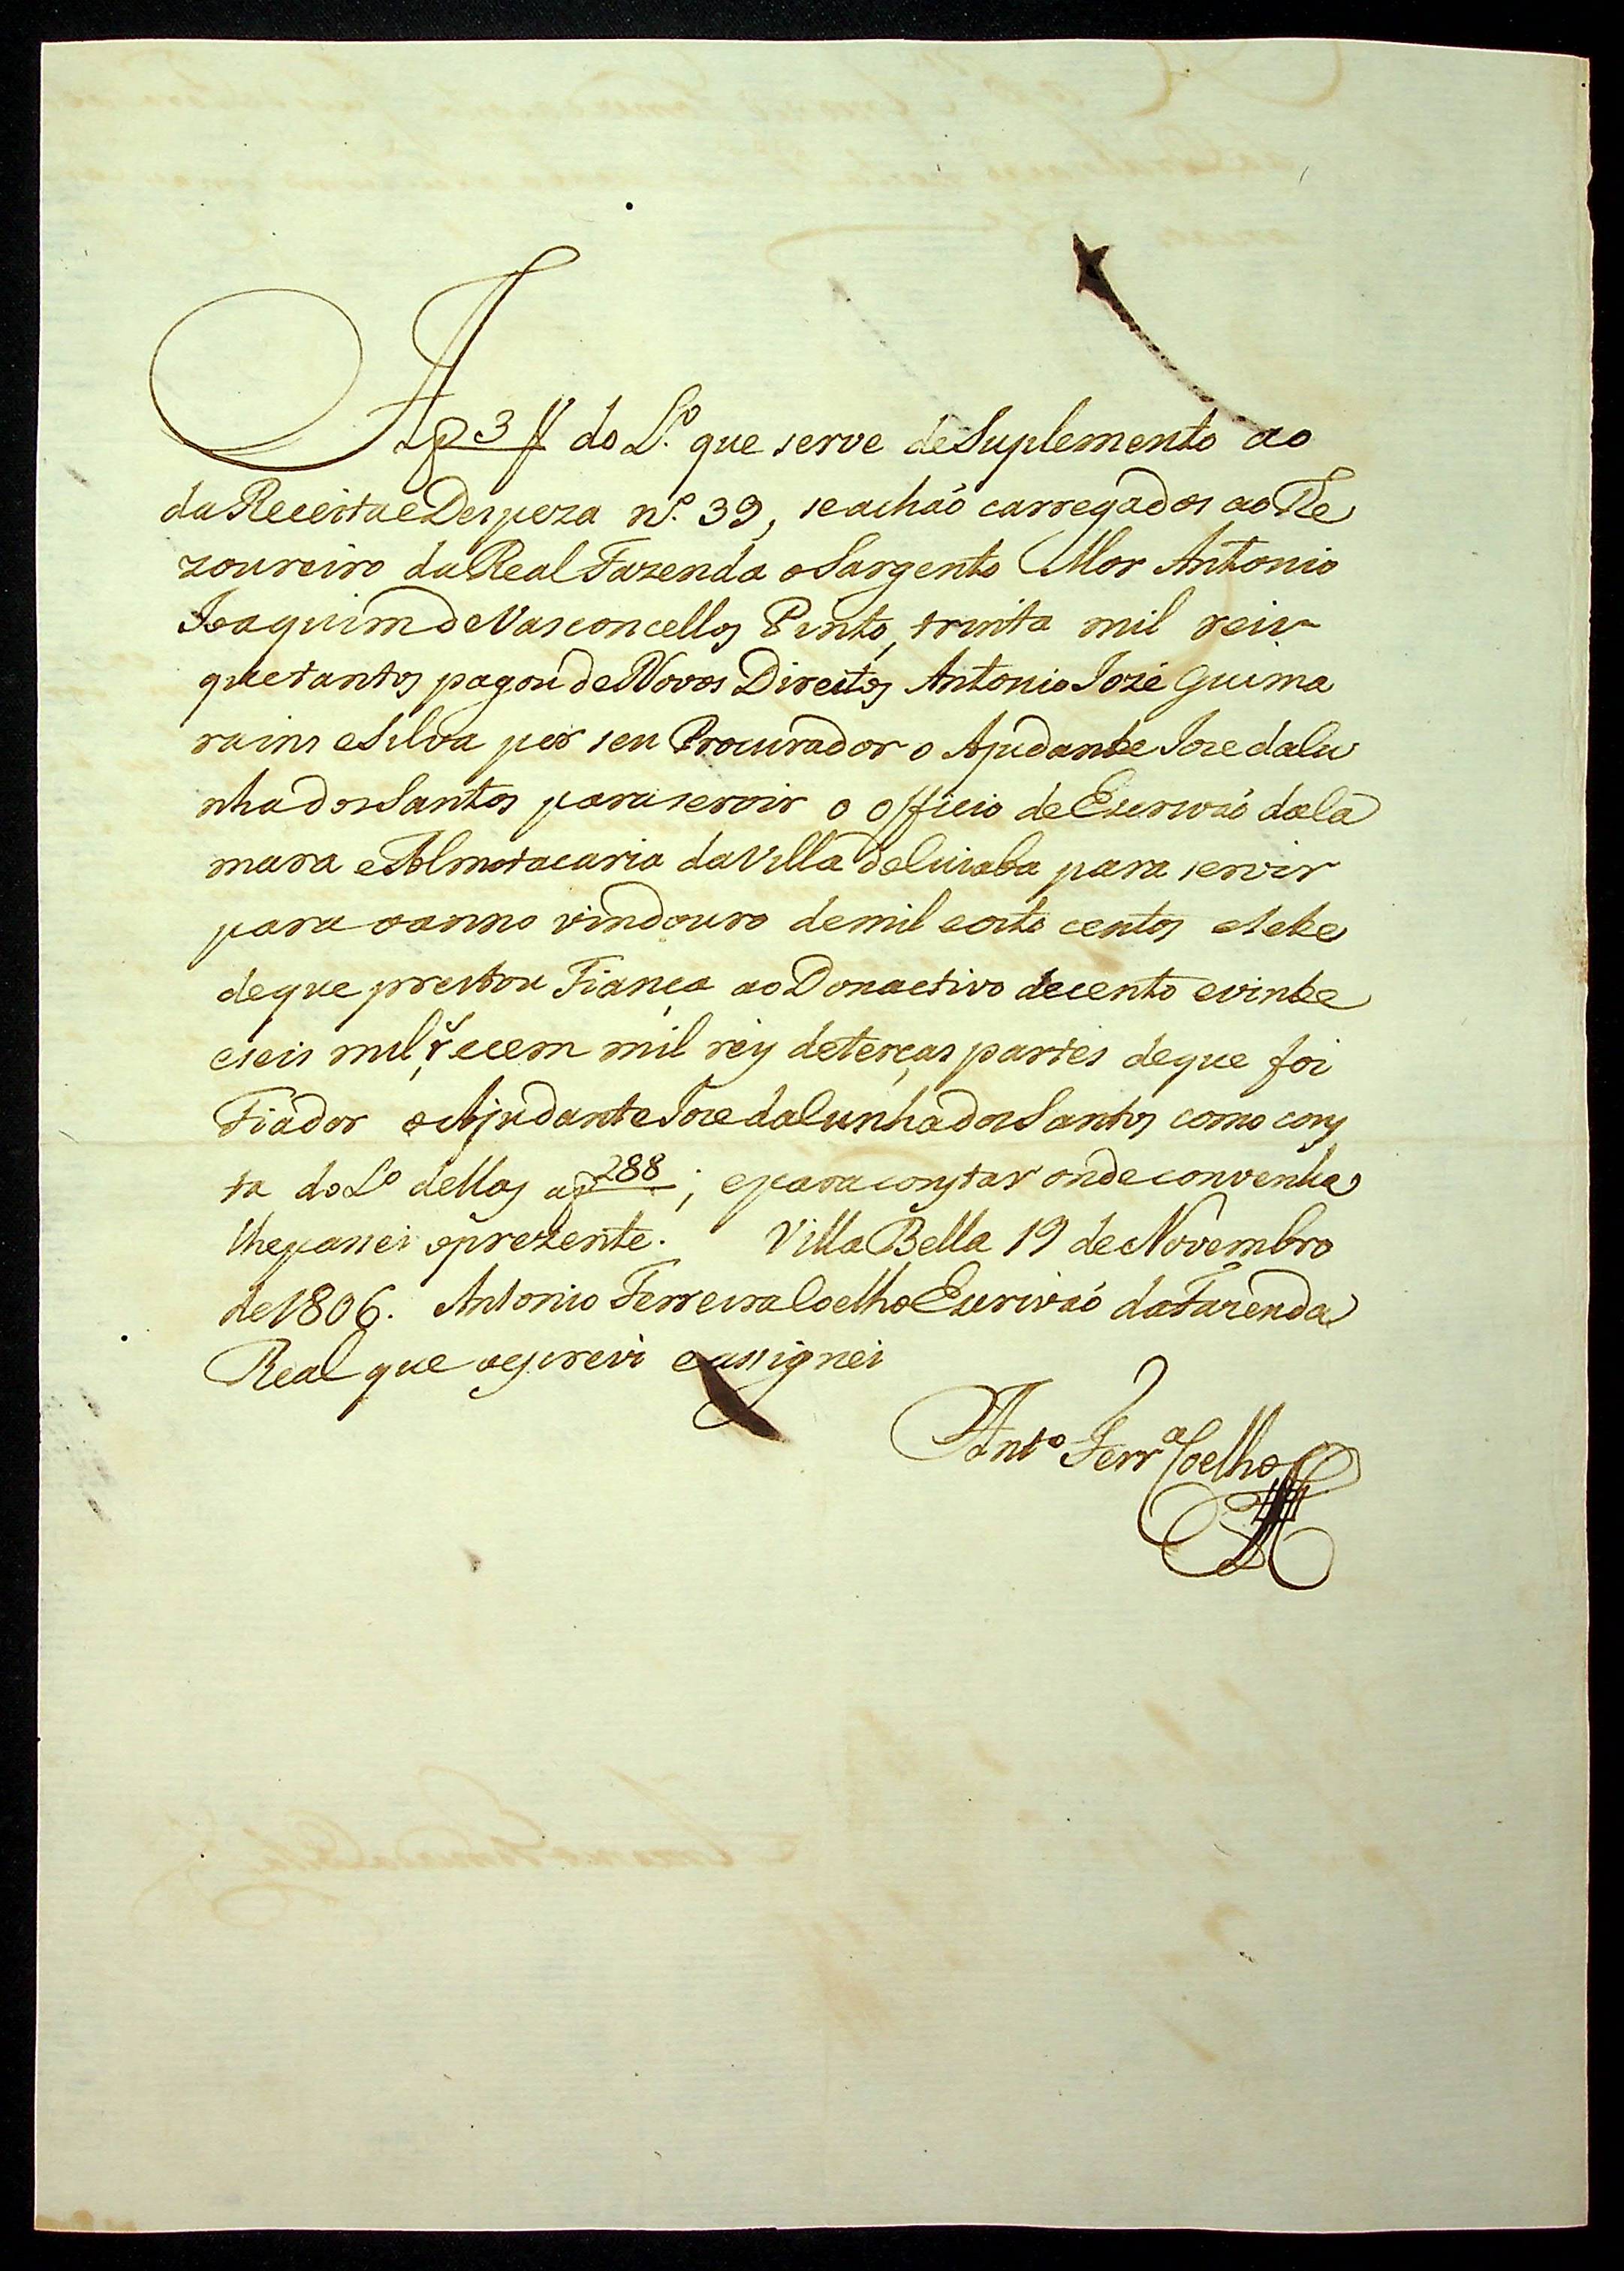 Af 3 v do L.º que serve de Suplemento ao
da Receita e Despeza n.º 39, se achaõ carregados ao The
zoureiro da Real Fazenda o Sargento Mor Antonio
Joaquim de Vasconcellos Pinto, trinta mil reis
que tantos pagou de Novos Direitos Antonio Jozé Guima
rains e Silva por seu Procurador o Ajudante Joze da Cu
nha dos Santos para servir o officio de Escrivaõ da Ca
mara e Almotacaria da Villa de Cuiaba para servir
para o anno vindouro de mil e oito centos e sete
de que prestou Fiança ao Donactivo de cento e vinte
e seis mil r.ˢ e cem mil reis de terças partes de que foi
Fiador o Ajudante Joze da Cunha dos Santos como cons
ta do L.º dellas af 288; e para constar onde convenha
lhe passei o prezente. Villa Bella 19 de Novembro
de 1806. Antonio Ferreira Coelho Escrivaõ da Fazenda
Real que o escrevi e assignei
Ant.º Ferr.ª Coelho